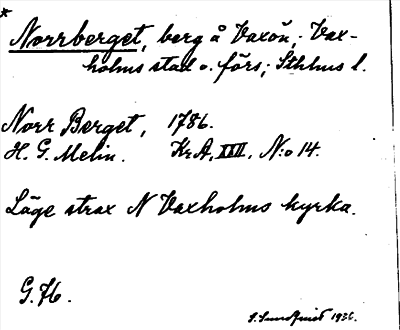 *
Norrberget, berg å Vaxön, Vax-
holms stad o. förs., Sthlms l.
Norr Berget, 1786.
H. G. Melin. Kr.A., XXII, N:o 14.
Läge strax N Vaxholms kyrka.
G. 76.
1936.